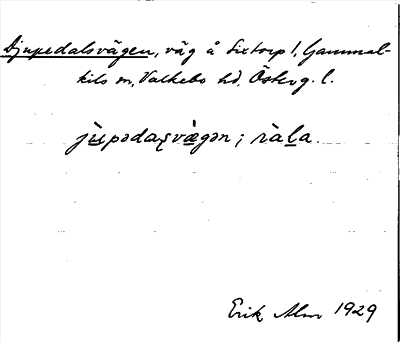 Djupedalsvägen, väg å Sixtorp 1, Gammal-
kils sn, Valkebo hd, Österg. l.
jùpədaʂvæ̀gən ; ràla.
Erik Alm 1929